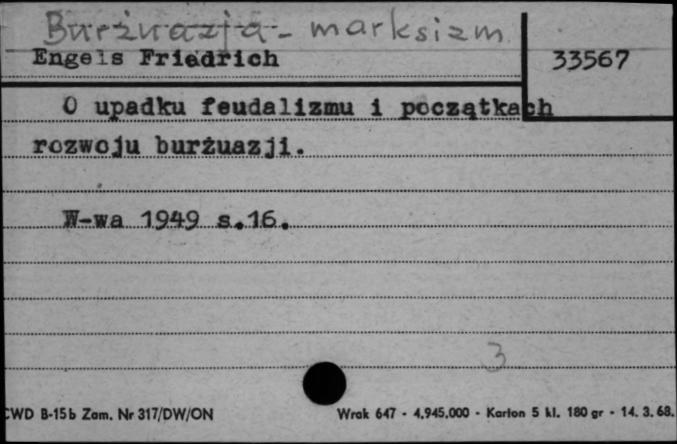 Burżuazja - marksizm
Engels Friedrich
33567
O upadku feudalizmu i początkach
rozwoju burżuazji.
W-wa 1949 s.16.
3
CWD B-15b Zam. Nr 317/DW/ON
Wrak 647 - 4.945.000 - Karton 5 kl. 180 gr - 14. 3. 68.